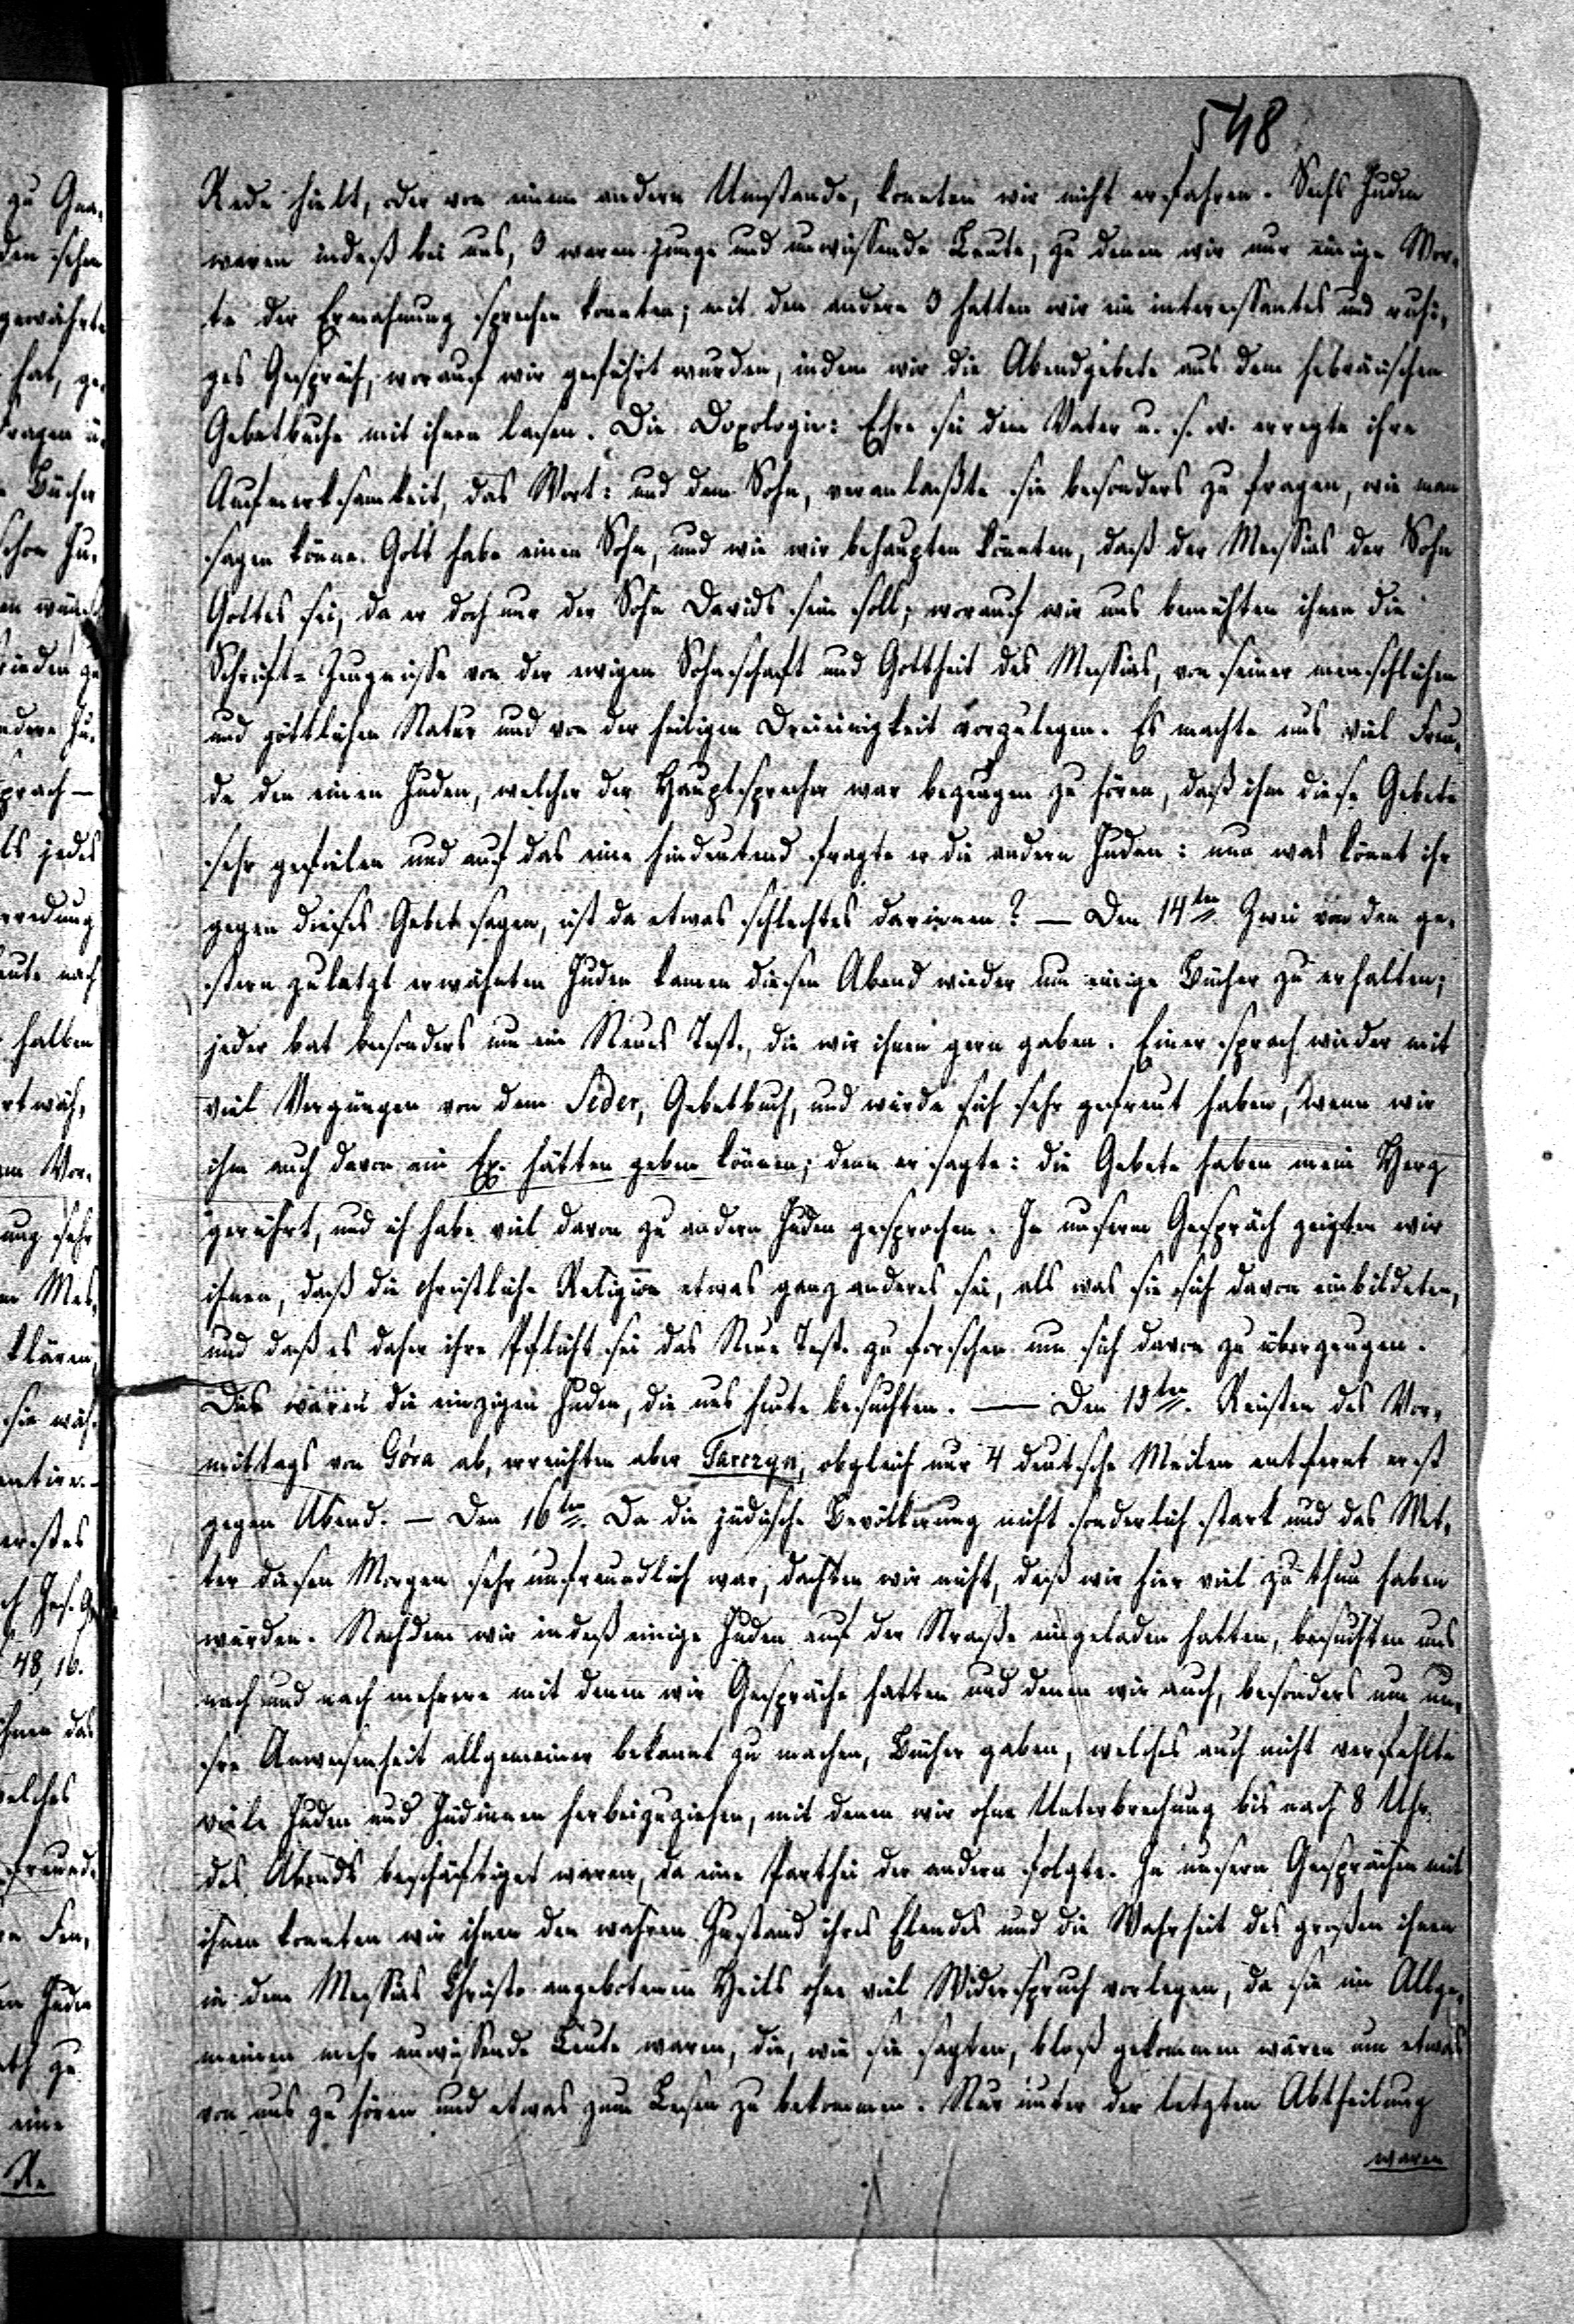 548
Rede hielt, oder von einem andern Umstande, konnten wir nicht erfahren. Sechs Juden
waren indeß bei uns, 3 waren junge und unwissende Leute, zu denen wir nur einige Wor-
te der Ermahnung sprechen konnten; mit den andern 3 hatten wir ein interessantes und ruhi-
ges Gespräch, worauf wir geführt wurden, indem wir die Abendgebete aus dem hebräischen
Gebetbuche mit ihnen lasen. Die Doxologie: Ehre sei dem Vater u. s. w. erregte ihre
Aufmerksamkeit, das Wort: und dem Sohn, veranlaßte sie besonders zu fragen, wie man
sagen könne Gott habe einen Sohn, und wie wir behaupten könnten, daß der Messias der Sohn
Gottes sei, da er doch nur der Sohn Davids sein soll; worauf wir uns bemühten ihnen die
Schrift-Zeugnisse von der ewigen Sohnschaft und Gottheit des Messias, von seiner menschlichen
und göttlichen Natur und von der heiligen Dreieinigkeit vorzulegen. Es machte uns viel Freu-
de den einen Juden, welcher der Hauptsprecher war bezeugen zu hören, daß ihm diese Gebete
sehr gefielen und auf das eine hindeutend fragte er die andern Juden: nun was könnt ihr
gegen dieses Gebet sagen, ist da etwas schlechtes darinnen? — Den 14ten Zwei von den ge-
stern zuletzt erwähnten Juden kamen diesen Abend wieder um einige Bücher zu erhalten;
jeder bat besonders um ein Neues Test., die wir ihnen gern gaben. Einer sprach wieder mit
viel Vergnügen von dem Seder, Gebetbuch, und würde sich sehr gefreut haben, wenn wir
ihm auch davon ein Ex. hätten geben können; denn er sagte: die Gebete haben mein Herz
gerührt, und ich habe viel davon zu andern Juden gesprochen. In unserm Gespräch zeigten wir
ihnen, daß die christliche Religion etwas ganz anderes sei, als was sie sich davon einbildeten,
und daß es daher ihre Pflicht sei das Neue Test. zu forschen um sich davon zu überzeugen.
Dies waren die einzigen Juden, die uns heute besuchten. — Den 15ten. Reisten des Vor-
mittags von Góra ab, erreichten aber Tarczyn, obgleich nur 4 deutsche Meilen entfernt erst
gegen Abend. — Den 16ten. Da die jüdische Bevölkerung nicht sonderlich stark und das Wet-
ter diesen Morgen sehr unfreundlich war, dachten wir nicht, daß wir hier viel zu thun haben
würden. Nachdem wir indeß einige Juden auf der Straße eingeladen hatten, besuchten uns
nach und nach mehrere mit denen wir Gespräche hatten und denen wir auch, besonders um un-
sre Anwesenheit allgemeiner bekannt zu machen, Bücher gaben, welches auch nicht verfehlte
viele Juden und Jüdinnen herbeizuziehen, mit denen wir ohne Unterbrechung bis nach 8 Uhr
des Abends beschäftiget waren, da eine Parthei der andern folgte. In unsern Gesprächen mit
ihnen konnten wir ihnen den wahren Zustand ihres Elendes und die Wahrheit des großen ihnen
in dem Messias Christo angebotenen Heils ohne viel Widerspruch vorlegen, da sie im Allge-
meinen mehr unwissende Leute waren, die, wie sie sagten, bloß gekommen wären um etwas
von uns zu hören und etwas zum Lesen zu bekommen. Nur unter der letzten Abtheilung
waren